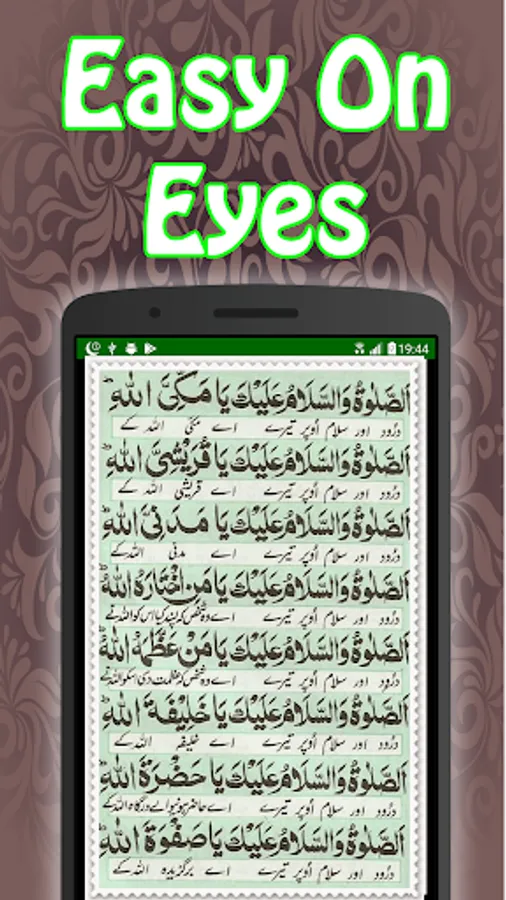 Easy On
Eyes
19:44
اَلصَّلوٰةُ وَالسَّلَامُ عَلَيْكَ يَا مَكِّيَّ اللهِ
درُود اور سلام اُوپر تیرے اے مکی اللہ کے
اَلصَّلوٰةُ وَالسَّلَامُ عَلَيْكَ يَا قُرَيْشِيَّ اللهِ
درُود اور سلام اُوپر تیرے اے قریشی اللہ کے
اَلصَّلوٰةُ وَالسَّلَامُ عَلَيْكَ يَا مَدَنِيَّ اللهِ
درُود اور سلام اُوپر تیرے اے مدنی اللہ کے
اَلصَّلوٰةُ وَالسَّلَامُ عَلَيْكَ يَا مَنِ اخْتَارَهُ اللهُ
درُود اور سلام اُوپر تیرے اے وہ شخص کہ پسند کیا اس کو اللہ نے
اَلصَّلوٰةُ وَالسَّلَامُ عَلَيْكَ يَا مَنْ عَظَّمَهُ اللهُ
درُود اور سلام اُوپر تیرے اے وہ شخص کہ عظمت دی اسکو اللہ نے
اَلصَّلوٰةُ وَالسَّلَامُ عَلَيْكَ يَا خَلِيْفَةَ اللهِ
درُود اور سلام اُوپر تیرے اے خلیفہ اللہ کے
اَلصَّلوٰةُ وَالسَّلَامُ عَلَيْكَ يَا حَضْرَةَ اللهِ
درُود اور سلام اُوپر تیرے اے حاضر ہونیوالے درگاہ اللہ کے
اَلصَّلوٰةُ وَالسَّلَامُ عَلَيْكَ يَا صَفْوَةَ اللهِ
درُود اور سلام اُوپر تیرے اے برگزیدہ اللہ کے